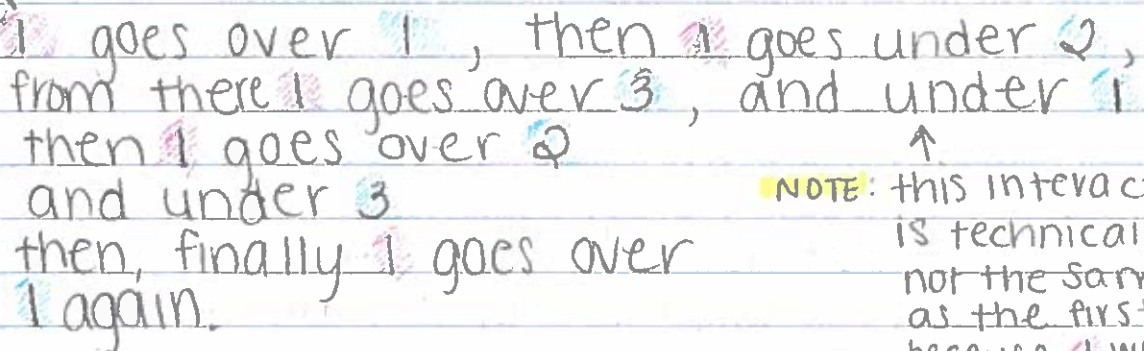 1 goes over 1, then 1 goes under 2,
from there 1 goes over 3, and under 1
then 1 goes over 2
and under 3
then, finally 1 goes over
1 again.
↑
NOTE: this interac
is technical
not the sam
as the firs
because 1 w